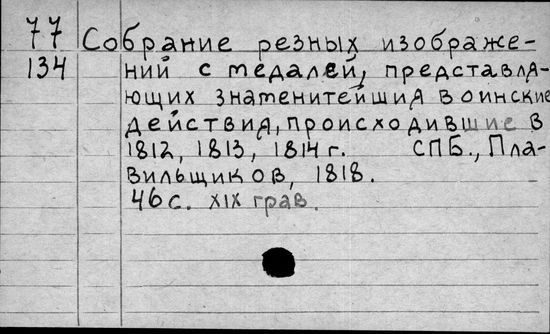 77 Собрание резных изображе-
134 ний с медалей, представля-
ющих знаменитейшия воинские
действия, происходившие в
1812, 1813, 1814 г. СПБ., Пла-
вильщиков, 1818.
46 с. XIX грав.